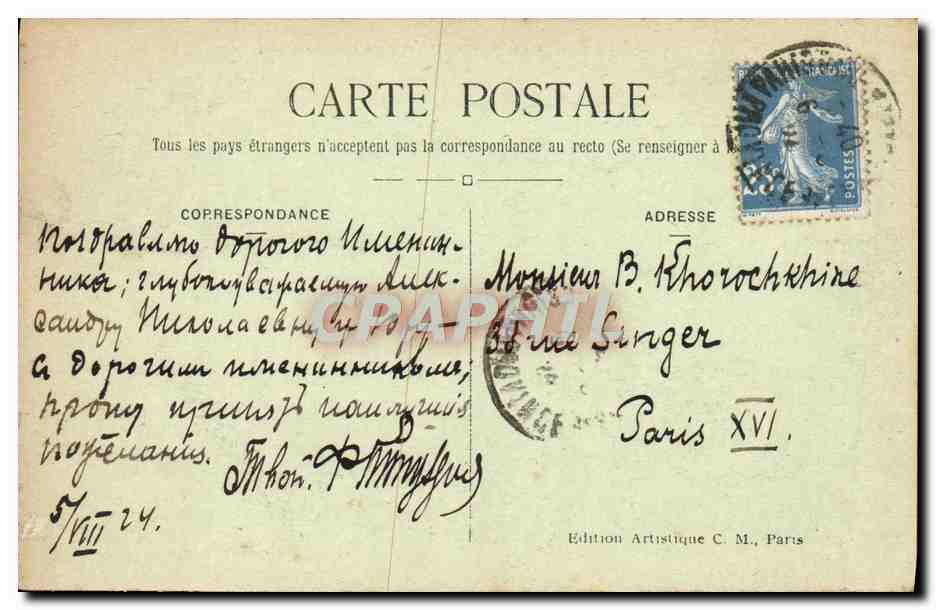 CARTE POSTALE
Tous les pays étrangers n'acceptent pas la correspondance au recto (Se renseigner à la
CORRESPONDANCE
Поздравляю дорогого Именин-
ника; глубокоуважаемую Алек-
сандру Николаевну и Юру
с дорогим именинником;
прошу принять наилучшія
пожеланія.
Твой
5/VIII 24.
ADRESSE
Monsieur B. Khorochkhine
38 rue Singer
Paris XVI.
Edition Artistique C. M., Paris
FRANÇAISE
POSTES
25
PARIS
CPAPHIL